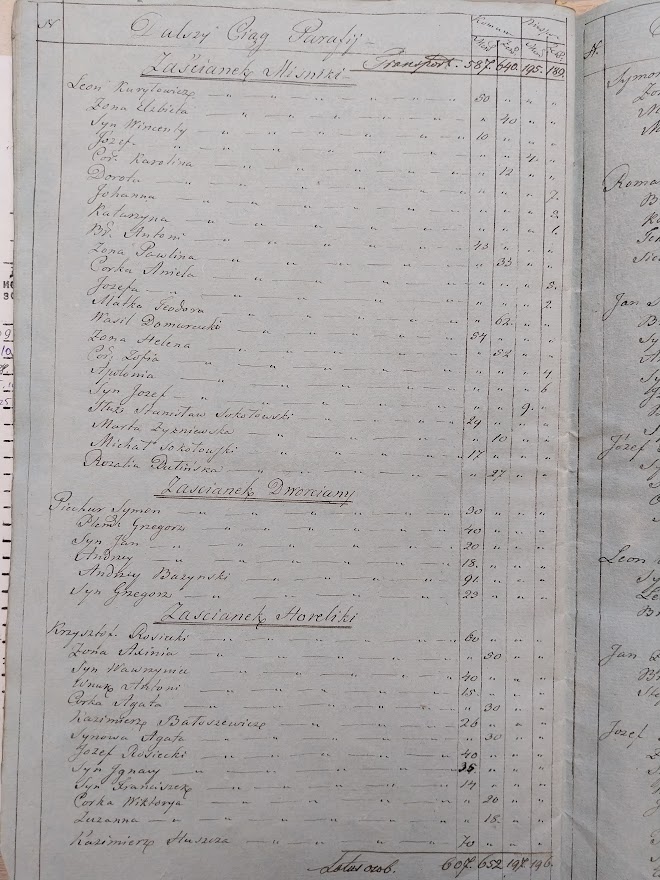 N
Dalszy Ciąg Parafij
Komun Niesp
Męs. Żeń. Męs. Żeń.
Zaścianek Miśniki Transport. 587. 640. 195. 189.
Leon Kuryłowicz 50
Żona Elżbieta 40
Syn Wincenty 10
Józef 4.
Cór. Karolina 12
Dorota 7.
Johanna 3.
Katarzyna 1.
Br. Antoni 43
Żona Pawlina 33
Córka Aniela 3.
Jozefa 2.
Matka Teodora 62.
Wasil Domaracki 54
Żona Helena 52
Cór. Zofia 4
Apolonia 6
Syn Jozef 9.
Służ. Stanisław Sokołowski 29
Marta Zyzniewska 10
Michał Sokołowski 17
Rozalia Dulińska 27
Zascianek Dworciany
Piekur Symon 30
Grzegorz 40
Syn Jan 20
Andrzy 18.
Andrzy Bazynski 91.
Syn Grzegorz 29
Zascianek Horeliki
Krzysztof Rosicki 60
Żona Axinia 50
Syn Wawrzyniec 40
Wnuk Antoni 15.
Córka Agata 30
Kazimierz Bałoszewicz 26
Synowa Agata 30
Jozef Rosiecki 40
Syn Jgnacy 35
Syn Franciszek 14
Corka Wiktorya 20
Zuzanna 18.
Kazimierz Huszcza 70
Lotus osob. 607. 652. 197. 196.
N.
Symon
Roma
Jan
Józef
Leon
Jan
Jozef